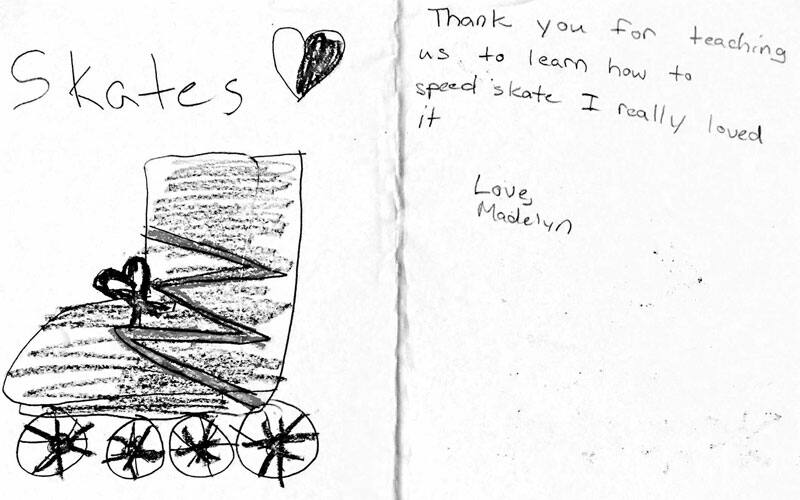 Skates
Thank you for teaching
us to learn how to
speed skate I really loved
it
Love,
Madelyn